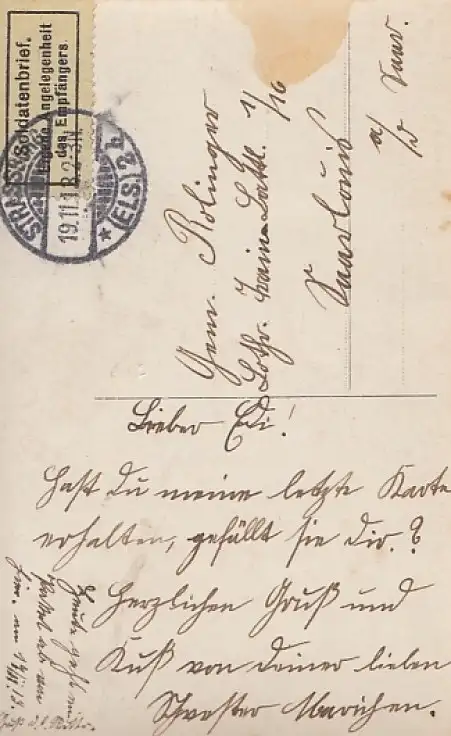 Soldatenbrief.
Eigene Angelegenheit
des Empfängers.
STRASSBURG
19.11.13.2-3N
* (ELS.) 2 b
Gem. Rolinger
Lothr. Train-Batl. 1/16
Saarlouis
a/d Saar.
Lieber Edi!
Hast Du meine letzte Karte
erhalten, gefällt sie Dir.?
Herzlichen Gruß und
Kuß von Deiner lieben
Schwester Marichen.
Heute geht ein
Paket ab an